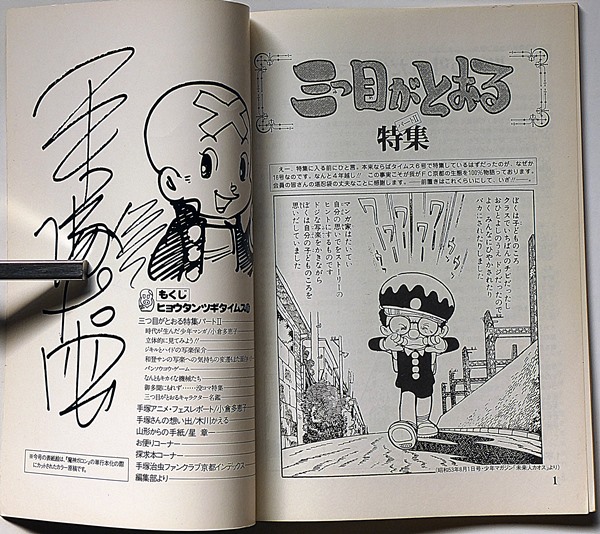 もくじ
ヒョウタンツギタイムス
三つ目がとおる特集パートⅡ
時代が生んだ少年マンガ/小倉多恵子
立体的に見てみよう!!
ジキルとハイドの写楽保介
和登サンの写楽への気持ちの変遷
バンソウコウ・ゲーム
なんともキカイな機械たち
御多聞にもれず……没コマ特集
三つ目がとおるキャラクター名鑑
手塚アニメ・フェスレポート/小倉多恵子
手塚さんの想い出/木川かえる
山形からの手紙/星 章一
お便りコーナー
探求本コーナー
手塚治虫ファンクラブ京都インデックス
編集部より
※今号の表紙絵は、「魔神ガロン」の単行本化の際
にカットされたカラー原稿です。
三つ目がとおる
パートⅡ
特集
えー、特集に入る前にひと言。本来ならばタイムス6号で特集しているはずだったのが、なぜか
16号なのです。なんと4年越し!! この事実こそが我がFC京都の生態を100%物語っております。
会員の皆さんの堪忍袋の丈夫なことに感謝します。——前置きはこれくらいにして、いざ!!——
ぼくは子どものころ
クラスでいちばんのチビだったし
おひとよしのうえドジだったので
よくみんなにひやかされたり
バカにされたりしました
マンガ家はたいてい
自分の思いでをストーリーの
ヒントにするものです
ドジな写楽をかきながら
ぼくは自分の子どものころを
思いだしていました
ワワワワワ
(昭和53年8月1日号・少年マガジン「未来人カオス」より)
1